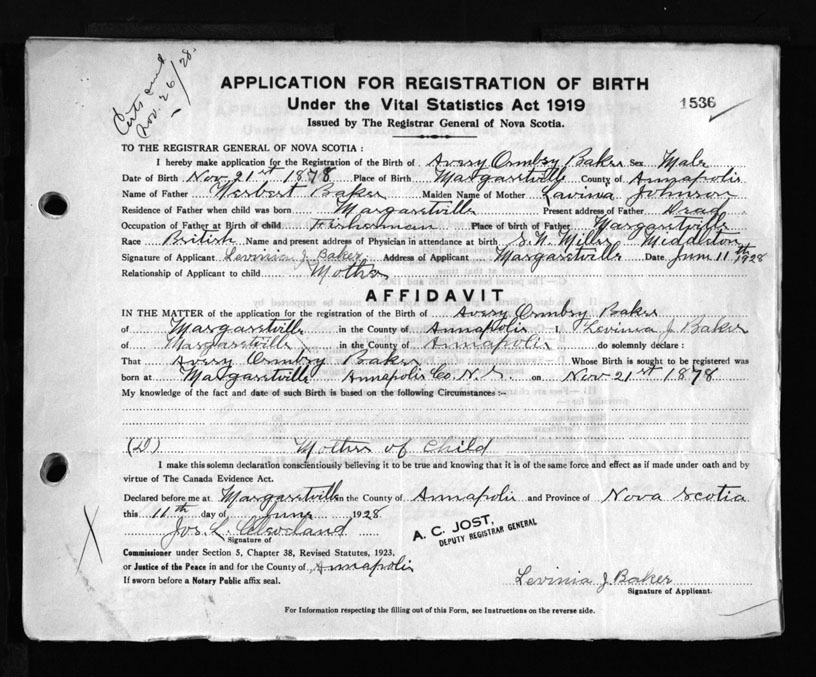 Certs and
Nov. 26/28.
APPLICATION FOR REGISTRATION OF BIRTH
Under the Vital Statistics Act 1919
1536
Issued by The Registrar General of Nova Scotia.
TO THE REGISTRAR GENERAL OF NOVA SCOTIA :
I hereby make application for the Registration of the Birth of Avery Ormbsy Baker Sex Male
Date of Birth Nov 21st 1878 Place of Birth Margaretville County of Annapolis
Name of Father Herbert Baker Maiden Name of Mother Lavinia Johnson
Residence of Father when child was born Margaretville Present address of Father Dead
Occupation of Father at Birth of child Fisherman Place of birth of Father Margaretville
Race British Name and present address of Physician in attendance at birth S. N. Miller Middleton
Signature of Applicant Levinia J Baker Address of Applicant Margaretville Date June 11th 1928
Relationship of Applicant to child Mother
AFFIDAVIT
IN THE MATTER of the application for the registration of the Birth of Avery Ormbsy Baker
of Margaretville in the County of Annapolis I, Levinia J Baker
of Margaretville in the County of Annapolis do solemnly declare :
That Avery Ormbsy Baker Whose Birth is sought to be registered was
born at Margaretville Annapolis Co. N. S. on Nov 21st 1878
My knowledge of the fact and date of such Birth is based on the following Circumstances :–
(D) Mother of Child
I make this solemn declaration conscientiously believing it to be true and knowing that it is of the same force and effect as if made under oath and by
virtue of The Canada Evidence Act.
Declared before me at Margaretville in the County of Annapolis and Province of Nova Scotia
this 11th day of June 1928
Jos. L. Cleveland
Signature of
A. C. JOST,
DEPUTY REGISTRAR GENERAL
Commissioner under Section 5, Chapter 38, Revised Statutes, 1923,
or Justice of the Peace in and for the County of Annapolis
If sworn before a Notary Public affix seal.
Levinia J. Baker
Signature of Applicant.
For Information respecting the filling out of this Form, see Instructions on the reverse side.